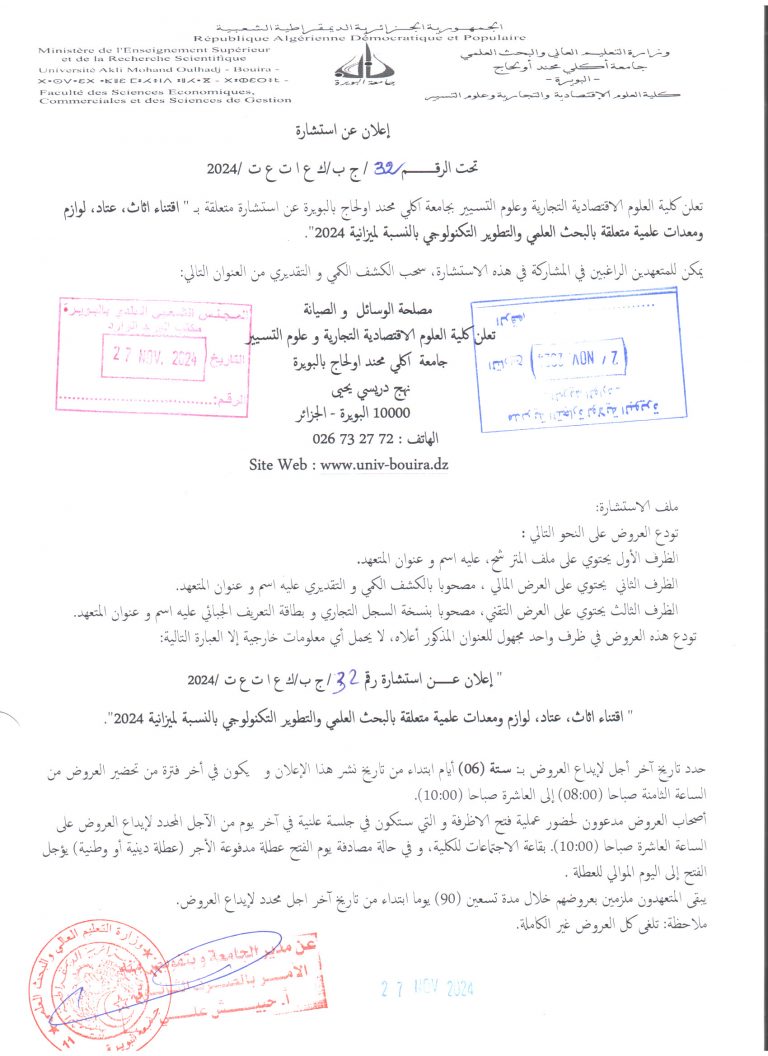 الجمهورية الجزائرية الديمقراطية الشعبية
République Algérienne Démocratique et Populaire
Ministère de l'Enseignement Supérieur
et de la Recherche Scientifique
Université Akli Mohand Oulhadj - Bouira -
Faculté des Sciences Economiques,
Commerciales et des Sciences de Gestion
وزارة التعليم العالي والبحث العلمي
جامعة أكلي محند أولحاج
- البويرة -
كلية العلوم الإقتصادية والتجارية وعلوم التسيير
جامعة البويرة
إعلان عن استشارة
تحت الرقم 32 / ج ب/ك ع ا ت ع ت /2024
تعلن كلية العلوم الاقتصادية التجارية وعلوم التسيير بجامعة اكلي محند اولحاج بالبويرة عن استشارة متعلقة بـ " اقتناء اثاث، عتاد، لوازم
ومعدات علمية متعلقة بالبحث العلمي والتطوير التكنولوجي بالنسبة لميزانية 2024".
يمكن للمتعهدين الراغبين في المشاركة في هذه الاستشارة، سحب الكشف الكمي و التقديري من العنوان التالي:
مصلحة الوسائل و الصيانة
تعلن كلية العلوم الاقتصادية التجارية و علوم التسيير
جامعة اكلي محند اولحاج بالبويرة
نهج دريسي يحيى
10000 البويرة - الجزائر
الهاتف : 72 27 73 026
Site Web : www.univ-bouira.dz
المجلس الشعبي البلدي بالبويرة
التاريخ 27 NOV. 2024
لرقم:
مديرية التجارة لولاية البويرة
التاريخ NOV 2024
الرقم
ملف الاستشارة:
تودع العروض على النحو التالي :
الظرف الأول يحتوي على ملف المترشح، عليه اسم و عنوان المتعهد.
الظرف الثاني يحتوي على العرض المالي ، مصحوبا بالكشف الكمي و التقديري عليه اسم و عنوان المتعهد.
الظرف الثالث يحتوي على العرض التقني، مصحوبا بنسخة السجل التجاري و بطاقة التعريف الجبائي عليه اسم و عنوان المتعهد.
تودع هذه العروض في ظرف واحد مجهول للعنوان المذكور أعلاه، لا يحمل أي معلومات خارجية إلا العبارة التالية:
" إعلان عن استشارة رقم 32 / ج ب/ك ع ا ت ع ت /2024
" اقتناء اثاث، عتاد، لوازم ومعدات علمية متعلقة بالبحث العلمي والتطوير التكنولوجي بالنسبة لميزانية 2024".
حدد تاريخ آخر أجل لإيداع العروض بـ: ستة (06) أيام ابتداء من تاريخ نشر هذا الإعلان و يكون في أخر فترة من تحضير العروض من
الساعة الثامنة صباحا (08:00) إلى العاشرة صباحا (10:00).
أصحاب العروض مدعوون لحضور عملية فتح الاظرفة و التي ستكون في جلسة علنية في آخر يوم من الآجل المحدد لإيداع العروض على
الساعة العاشرة صباحا (10:00). بقاعة الاجتماعات للكلية، و في حالة مصادفة يوم الفتح عطلة مدفوعة الأجر (عطلة دينية أو وطنية) يؤجل
الفتح إلى اليوم الموالي للعطلة .
يبقى المتعهدون ملزمين بعروضهم خلال مدة تسعين (90) يوما ابتداء من تاريخ آخر اجل محدد لإيداع العروض.
ملاحظة: تلغى كل العروض غير الكاملة.
وزارة التعليم العالي والبحث العلمي
عن مدير الجامعة و بتفويض منه
27 NOV 2024